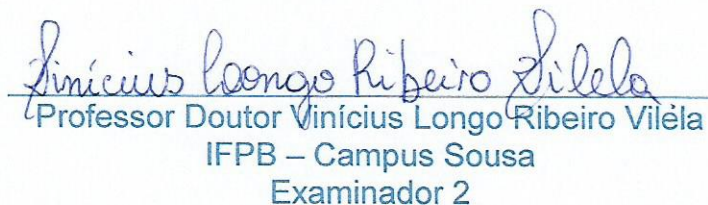 Vinícius Longo Ribeiro Vilela
Professor Doutor Vinícius Longo Ribeiro Vilela
IFPB – Campus Sousa
Examinador 2